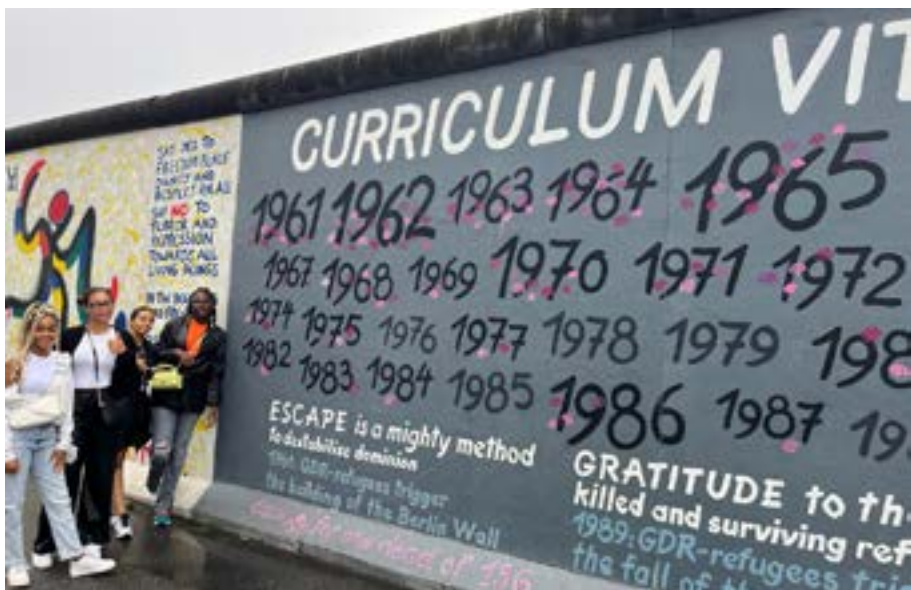 SAY YES TO
FREEDOM, PEACE
DIGNITY AND
RESPECT FOR ALL
SAY NO TO
TERROR AND
REPRESSION
TOWARDS ALL
LIVING BEINGS
CURRICULUM VIT
1961 1962 1963 1964 1965
1967 1968 1969 1970 1971 1972
1974 1975 1976 1977 1978 1979 198
1982 1983 1984 1985 1986 1987 19
ESCAPE is a mighty method
to destabilise dominion
1961: GDR-refugees trigger
the building of the Berlin Wall
GRATITUDE to th
killed and surviving ref
1989: GDR-refugees trig
the fall of th
of 136